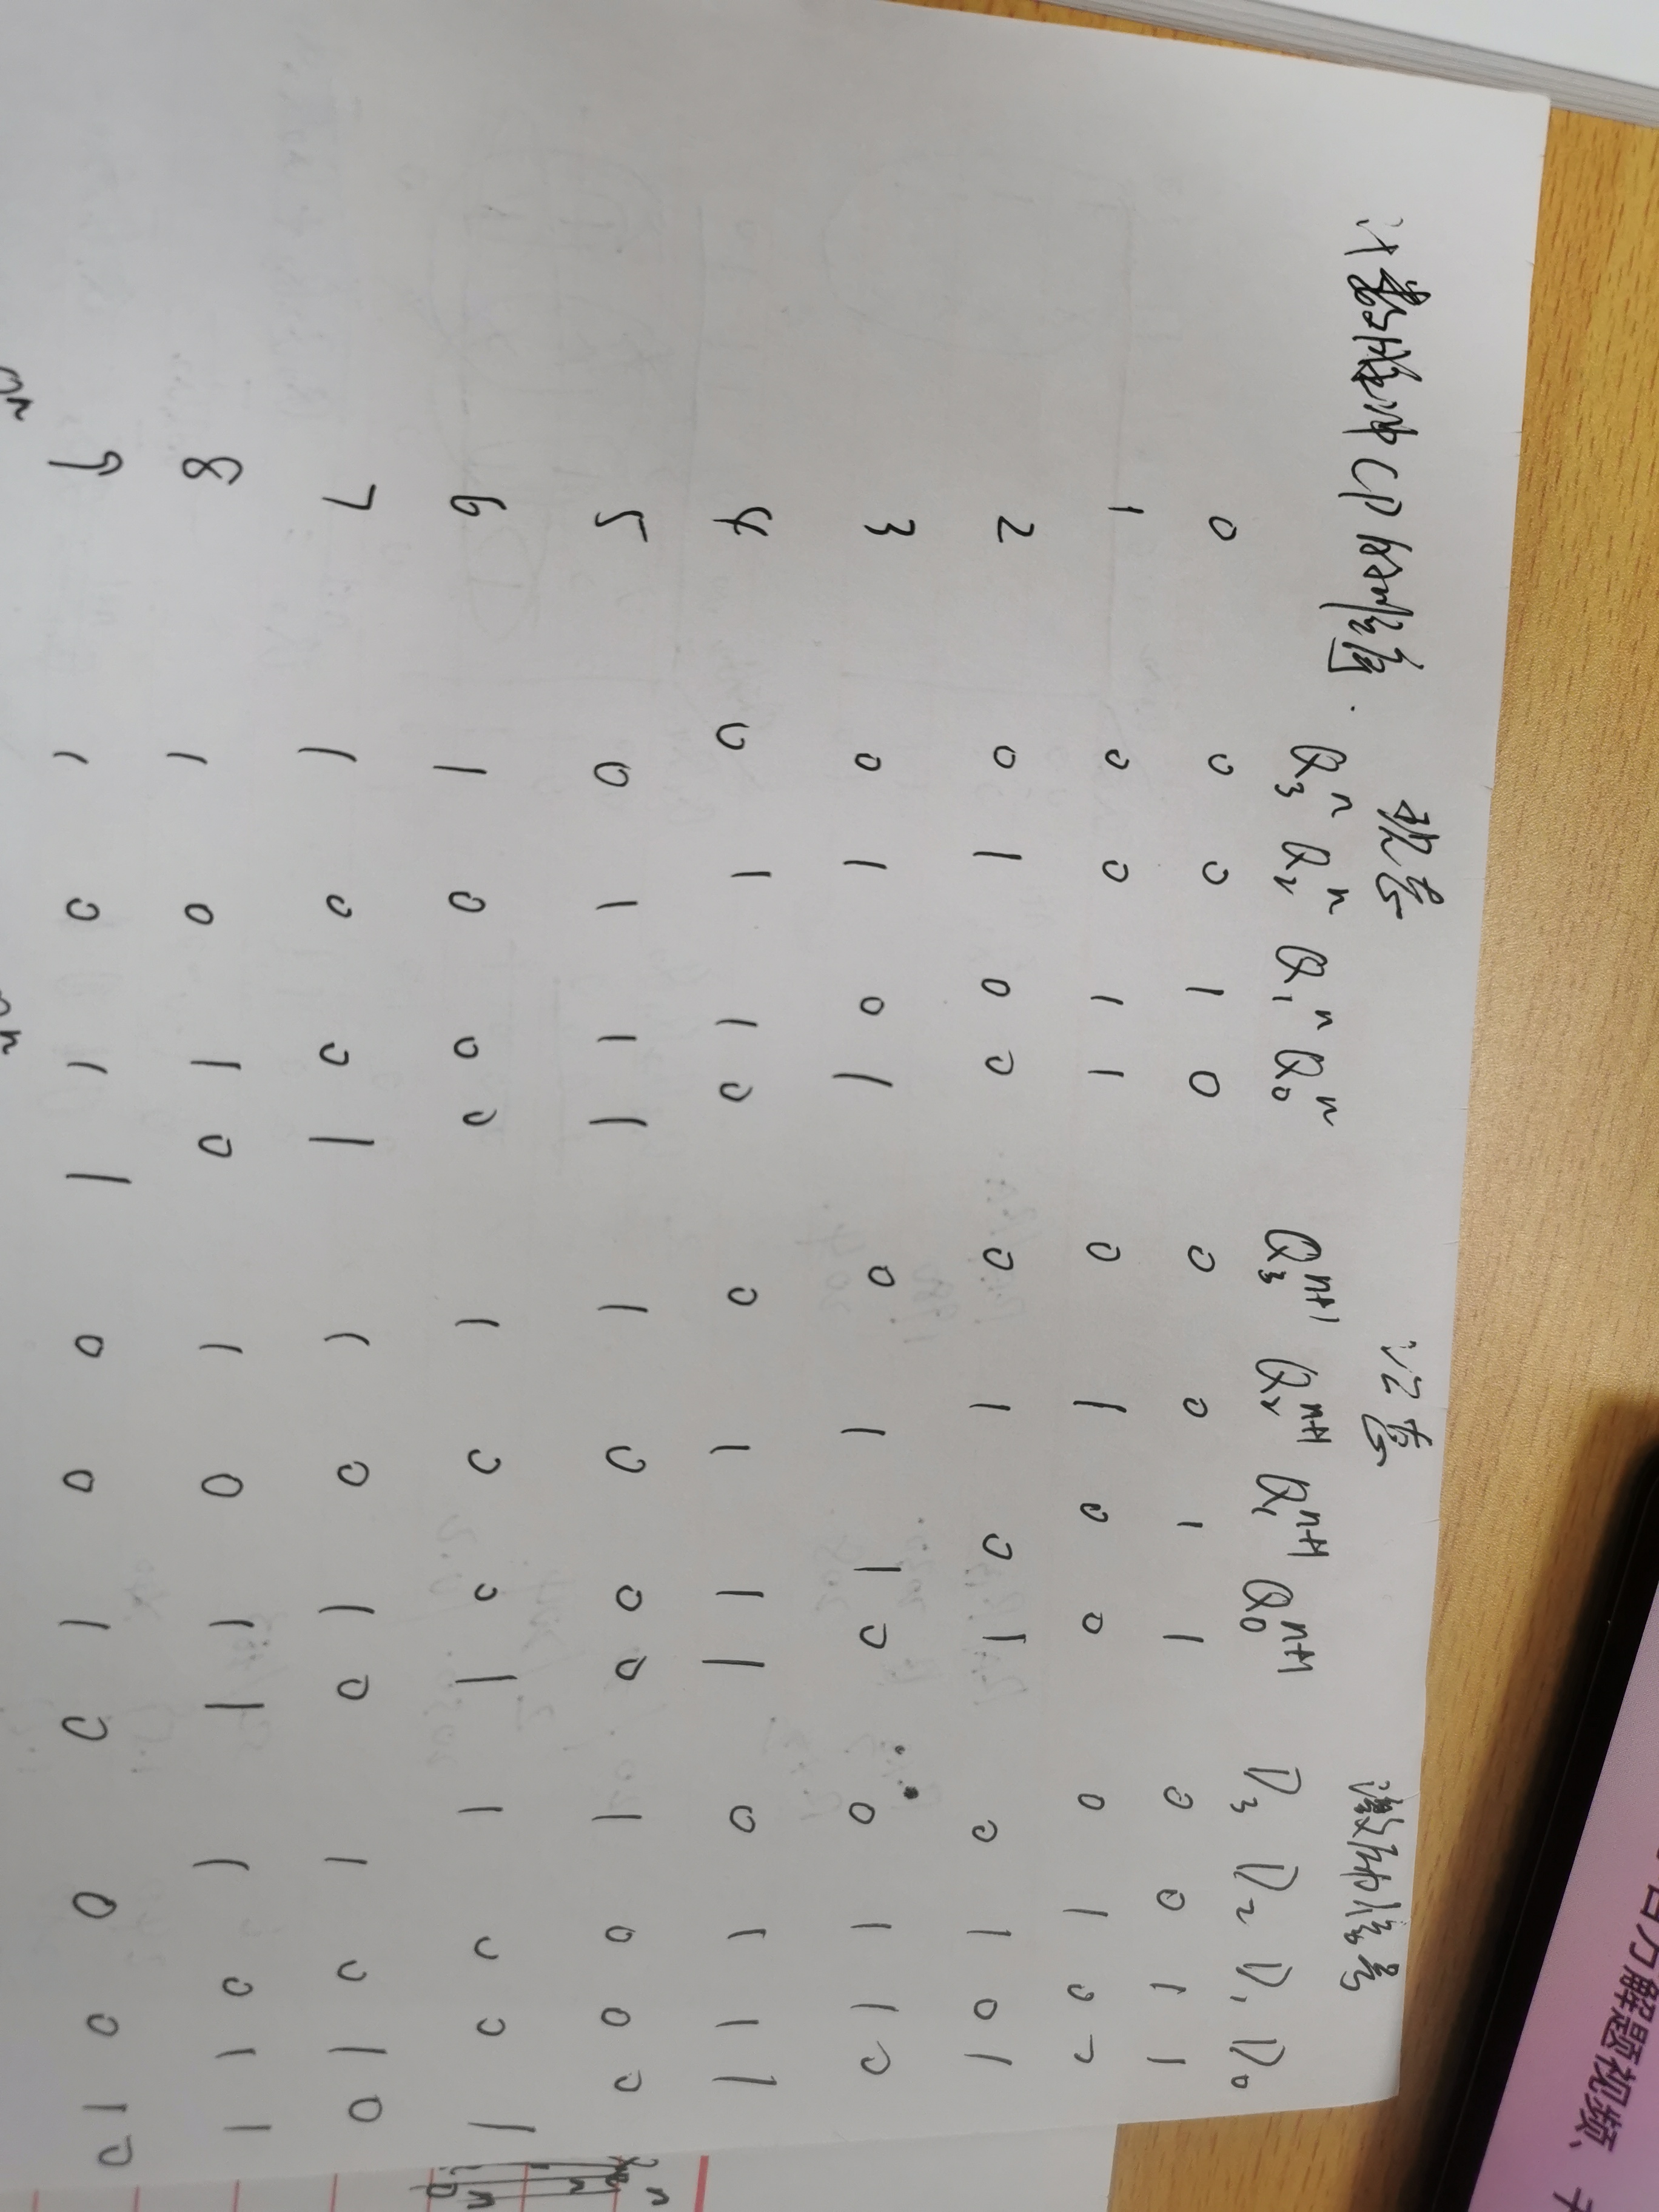 现态 次态 激励信号
计数脉冲CP的顺序. Q₃ⁿ Q₂ⁿ Q₁ⁿ Q₀ⁿ Q₃ⁿ⁺¹ Q₂ⁿ⁺¹ Q₁ⁿ⁺¹ Q₀ⁿ⁺¹ D₃ D₂ D₁ D₀
0 0 0 1 0 0 0 1 1 0 0 1 1
1 0 0 1 1 0 1 0 0 0 1 0 0
2 0 1 0 0 0 1 0 1 0 1 0 1
3 0 1 0 1 0 1 1 0 0 1 1 0
4 0 1 1 0 0 1 1 1 0 1 1 1
5 0 1 1 1 1 0 0 0 1 0 0 0
6 1 0 0 0 1 0 0 1 1 0 0 1
7 1 0 0 1 1 0 1 0 1 0 1 0
8 1 0 1 0 1 0 1 1 1 0 1 1
9 1 0 1 1 0 0 1 0 0 0 1 0
解题视频、